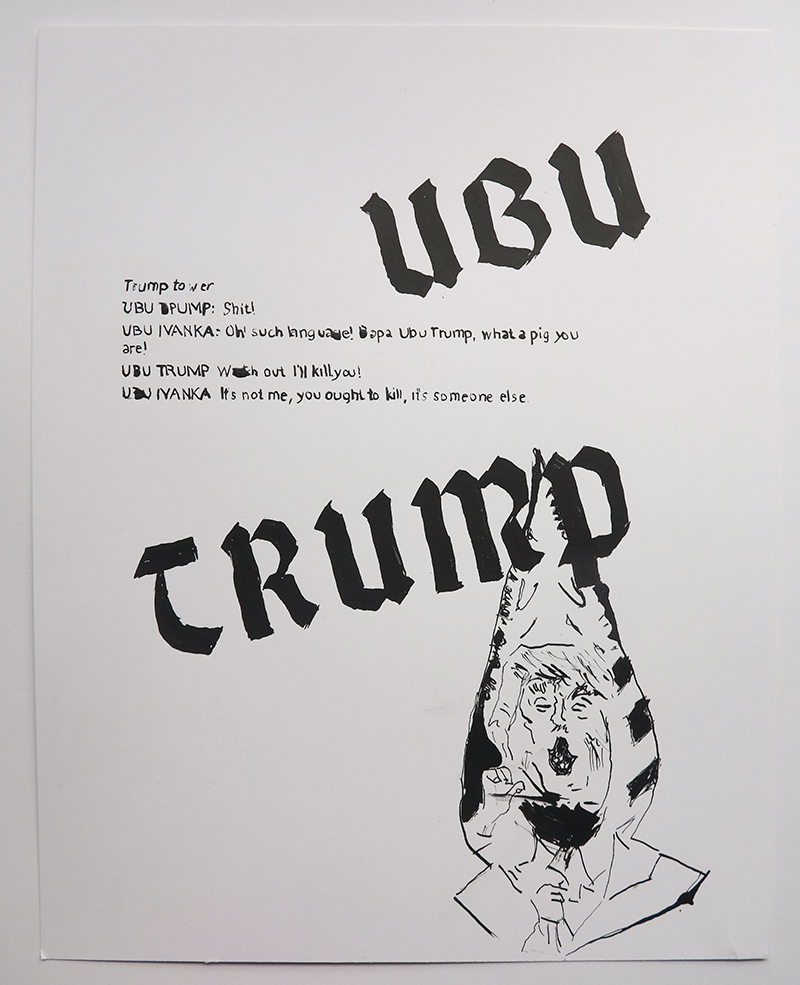 UBU
Trump tower
UBU TPUMP: Shit!
UBU IVANKA: Oh! such language! Papa Ubu Trump, what a pig you
are!
UBU TRUMP Watch out I'll kill you!
UBU IVANKA It's not me, you ought to kill, it's someone else.
TRUMP